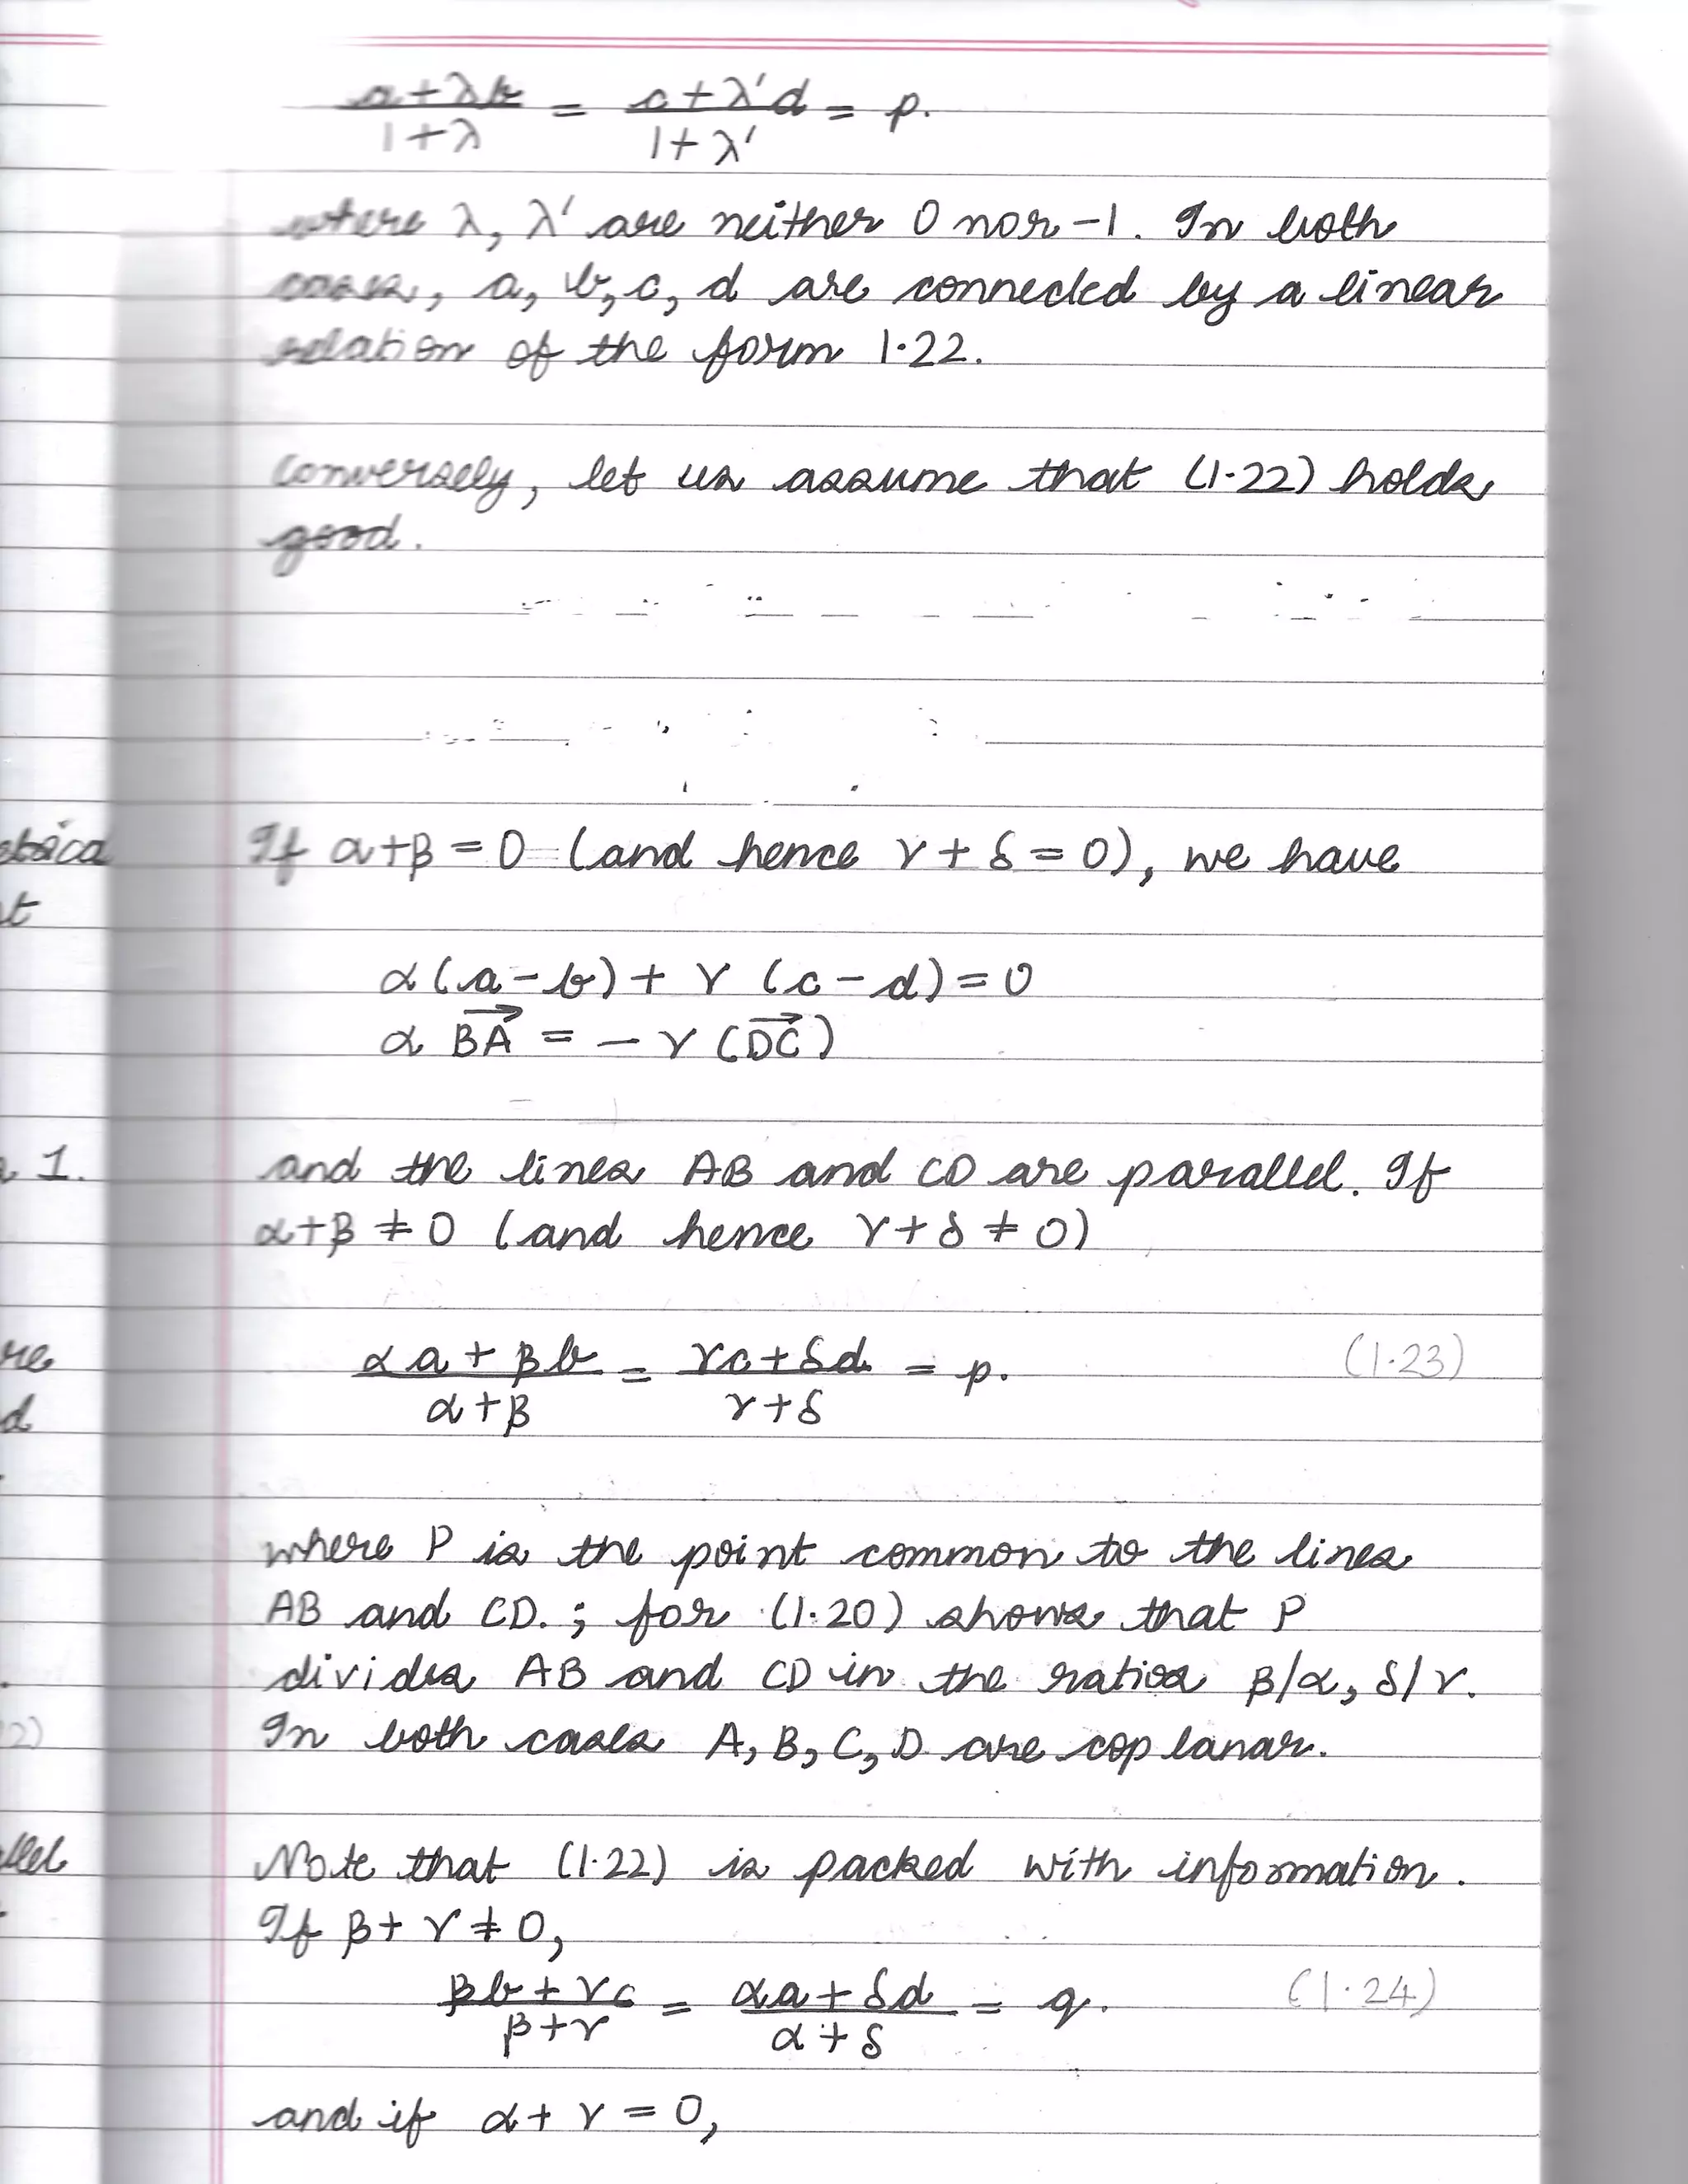 (a + λb)/(1 + λ) = (c + λ'd)/(1 + λ') = p.
where λ, λ' are neither 0 nor -1. In both
cases, a, b, c, d are connected by a linear
relation of the form 1.22.
Conversely, let us assume that (1.22) holds
good.
If α+β = 0 (and hence γ + δ = 0), we have
α(a - b) + γ (c - d) = 0
α B⃗A⃗ = - γ (D⃗C⃗)
and the lines AB and CD are parallel. If
α+β ≠ 0 (and hence γ + δ ≠ 0)
(αa + βb)/(α+β) = (γc + δd)/(γ+δ) = p. (1.23)
where P is the point common to the lines
AB and CD. ; for (1.20) shows that P
divides AB and CD in the ratios β/α, δ/γ.
In both cases A, B, C, D are coplanar.
Note that (1.22) is packed with information.
If β + γ ≠ 0,
(βb + γc)/(β+γ) = (αa + δd)/(α + δ) = q. (1.24)
and if α + γ = 0,